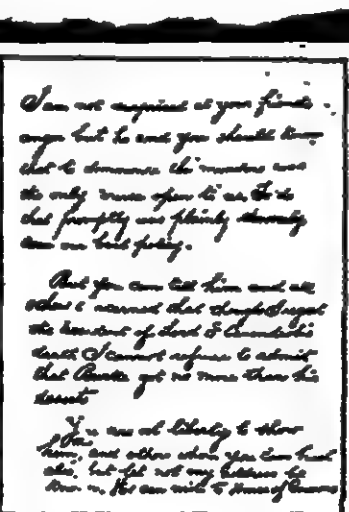 I am not surprised at your friend's
anger but he and you should know
that to denounce the murders was
the only course open to us. To do
that promptly was plainly
our best policy.
But you can tell him and all
others concerned that though I regret
the accident of Lord F Cavendish's
death I cannot refuse to admit
that Burke got no more than his
deserts
You are at liberty to show
him, and others whom you can trust
also, but let not my address be
known. He can write to House of Commons